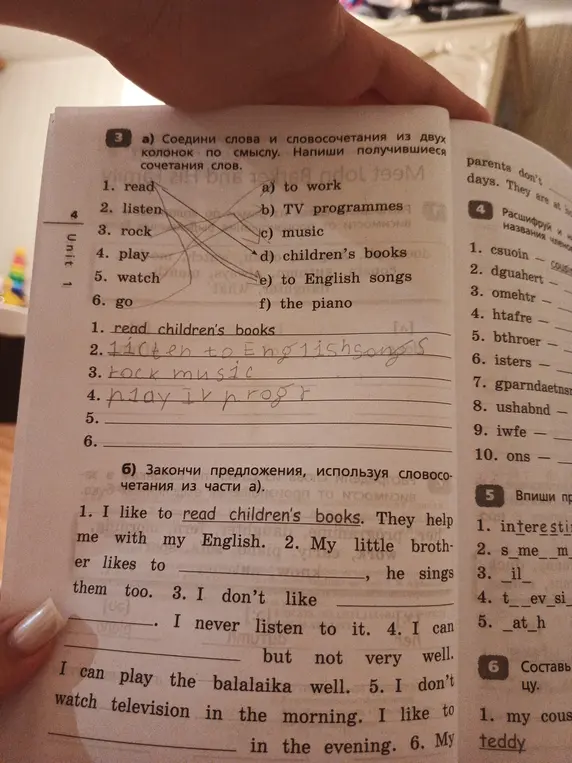 3 а) Соедини слова и словосочетания из двух
колонок по смыслу. Напиши получившиеся
сочетания слов.
1. read
2. listen
3. rock
4. play
5. watch
6. go
a) to work
b) TV programmes
c) music
d) children's books
e) to English songs
f) the piano
1. read children's books
2. licten to Englishsongs
3. rock music
4. play
5.
6.
б) Закончи предложения, используя словосо-
четания из части а).
1. I like to read children's books. They help
me with my English. 2. My little broth-
er likes to ____, he sings
them too. 3. I don't like ____
____. I never listen to it. 4. I can
____ but not very well.
I can play the balalaika well. 5. I don't
watch television in the morning. I like to
____ in the evening. 6. My
4
Unit 1
parents don't
days. They are at
4 Расшифруй и
названия
1. csuoin –
2. dguahert –
3. omehtr –
4. htafre –
5. bthroer –
6. isters –
7.
8. ushabnd –
9. iwfe –
10. ons –
5 Впиши
1. interesti
2. s_me__m
3. _il_
4. t__ev_si_
5. _at_h
6 Составь
цу.
1. my cous
teddy